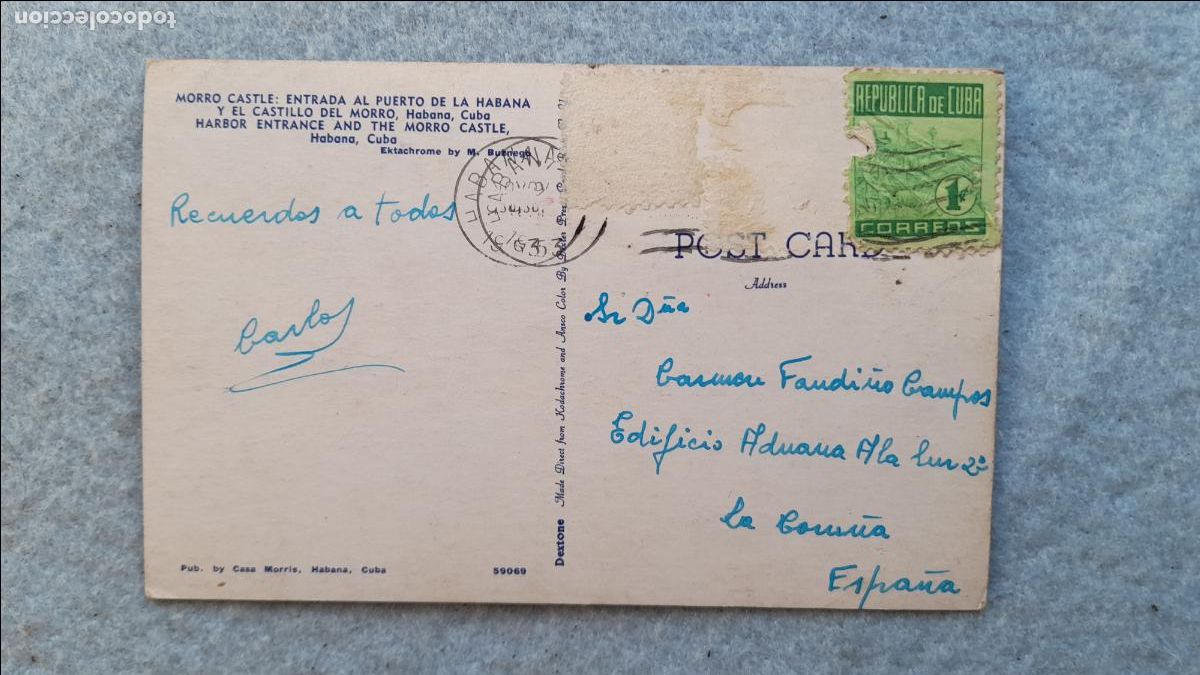 todocoleccion
MORRO CASTLE: ENTRADA AL PUERTO DE LA HABANA
Y EL CASTILLO DEL MORRO, Habana, Cuba
HARBOR ENTRANCE AND THE MORRO CASTLE,
Habana, Cuba
Ektachrome by M. Buznego
Recuerdos a todos
Carlos
Pub. by Casa Morris, Habana, Cuba
59069
Dextone Made Direct from Kodachrome and Ansco Color By Dexter Press
HABANA
1953
REPUBLICA DE CUBA
1¢
CORREOS
POST CARD
Address
Sr Dña
Carmen Fandiño Campos
Edificio Aduana Ala Sur 2º
La Coruña
España